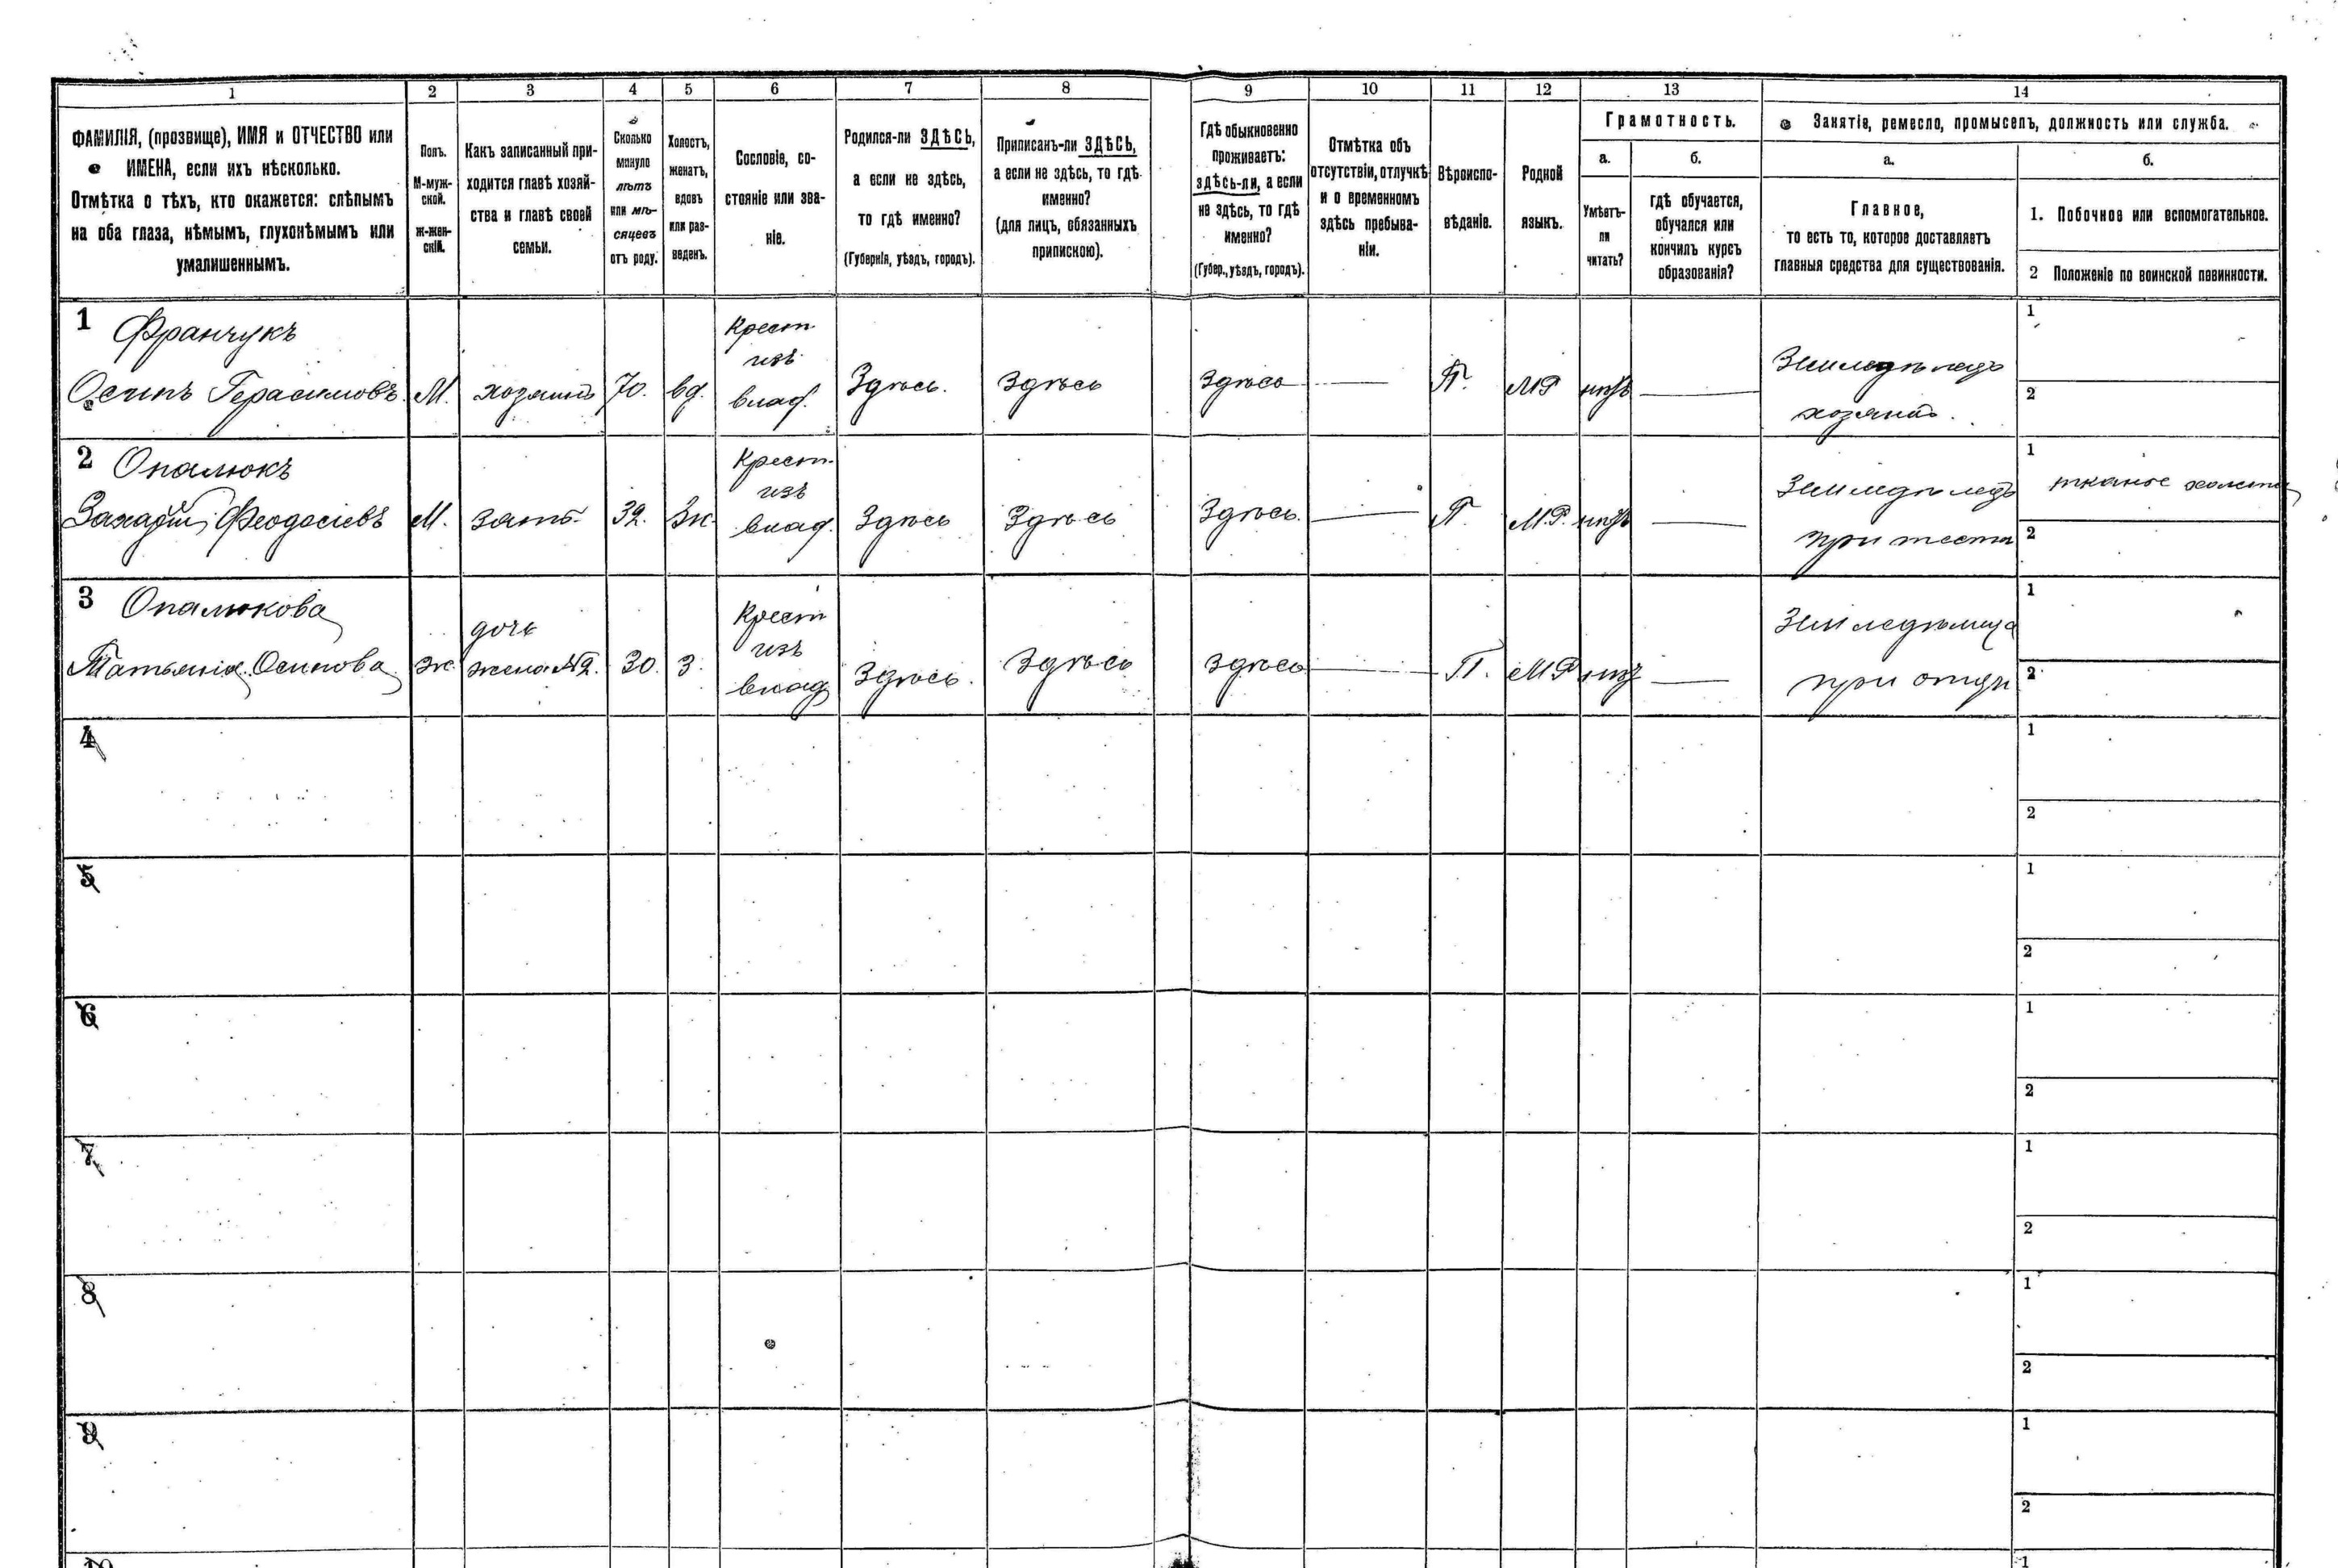 1 2 3 4 5 6 7 8 9 10 11 12 13 14
ФАМИЛІЯ, (прозвище), ИМЯ и ОТЧЕСТВО или
ИМЕНА, если ихъ нѣсколько.
Отмѣтка о тѣхъ, кто окажется: слѣпымъ
на оба глаза, нѣмымъ, глухонѣмымъ или
умалишеннымъ.
Полъ.
М-муж-
ской.
ж-жен-
скій.
Какъ записанный при-
ходится главѣ хозяй-
ства и главѣ своей
семьи.
Сколько
минуло
лѣтъ
или мѣ-
сяцевъ
отъ роду.
Холостъ,
женатъ,
вдовъ
или раз-
веденъ.
Сословіе, со-
стояніе или зва-
ніе.
Родился-ли ЗДѢСЬ,
а если не здѣсь,
то гдѣ именно?
(Губернія, уѣздъ, городъ).
Приписанъ-ли ЗДѢСЬ,
а если не здѣсь, то гдѣ
именно?
(для лицъ, обязанныхъ
припискою).
Гдѣ обыкновенно
проживаетъ:
здѣсь-ли, а если
не здѣсь, то гдѣ
именно?
(Губер., уѣздъ, городъ).
Отмѣтка объ
отсутствіи, отлучкѣ
и о временномъ
здѣсь пребыва-
ніи.
Вѣроиспо-
вѣданіе.
Родной
языкъ.
Грамотность.
а.
Умѣетъ-
ли
читать?
б.
гдѣ обучается,
обучался или
кончилъ курсъ
образованія?
Занятіе, ремесло, промыселъ, должность или служба.
а.
Главное,
то есть то, которое доставляетъ
главныя средства для существованія.
б.
1. Побочное или вспомогательное.
2 Положеніе по воинской повинности.
1 Франчукъ
Осипъ Герасимовъ
М.
хозяинъ
70.
вд.
Крест
изъ
влад.
Здѣсь.
Здѣсь
Здѣсь
—
П.
МР
нѣтъ
—
Земледѣлецъ
хозяинъ.
1
2
2 Опалюкъ
Захарій Феодосіевъ
М.
зять
32.
Жн.
Крест.
изъ
влад.
Здѣсь
Здѣсь
Здѣсь.
—
П.
М.Р.
нѣтъ
—
Земледѣлецъ
при тестѣ
1 тканье холста
2
3 Опалюкова
Татьяна Осипова
Ж.
дочь
жена №2.
30.
З.
Крест
изъ
влад
Здѣсь.
Здѣсь
Здѣсь
—
П.
МР
нѣтъ
—
Земледѣлица
при отцѣ
1
2
4
1
2
5
1
2
6
1
2
7
1
2
8
1
2
9
1
2
10
1